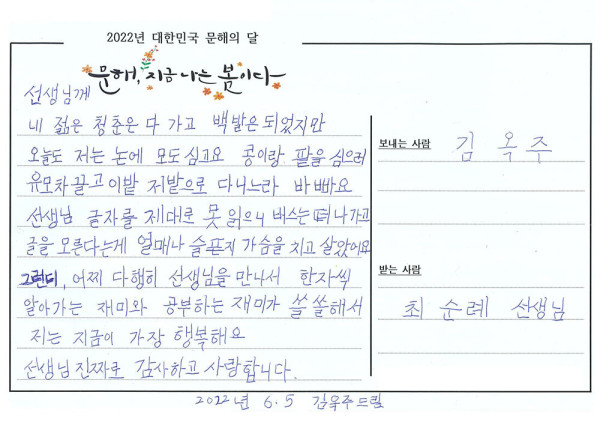 2022년 대한민국 문해의 달
문해, 지금 나는 봄이다
선생님께
내 젊은 청춘은 다 가고 백발은 되었지만
오늘도 저는 논에 모도 심고요 콩이랑 팥을 심으러
유모차 끌고 이밭 저밭으로 다니느라 바빠요
선생님 글자를 제대로 못 읽으니 버스는 떠나가고
글을 모른다는게 얼매나 슬픈지 가슴을 치고 살았어요
그런디, 어찌 다행히 선생님을 만나서 한자씩
알아가는 재미와 공부하는 재미가 쏠쏠해서
저는 지금이 가장 행복해요
선생님 진짜로 감사하고 사랑합니다.
2022년 6.5 김옥주드림
보내는 사람 김옥주
받는 사람
최순례 선생님